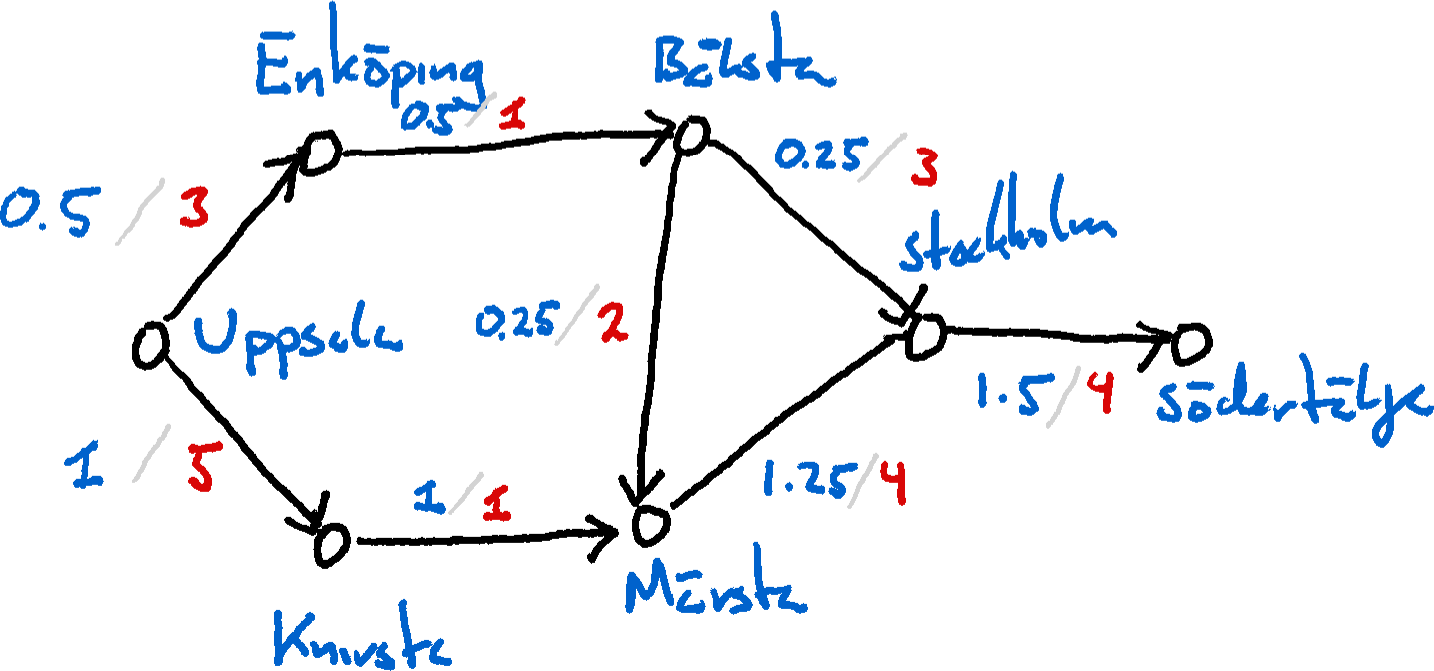 Enköping
Bålsta
0.5/1
0.25/3
0.5/3
stockholm
Uppsala
0.25/2
1.5/4
södertälje
1/5
1/1
1.25/4
Märsta
Knivsta